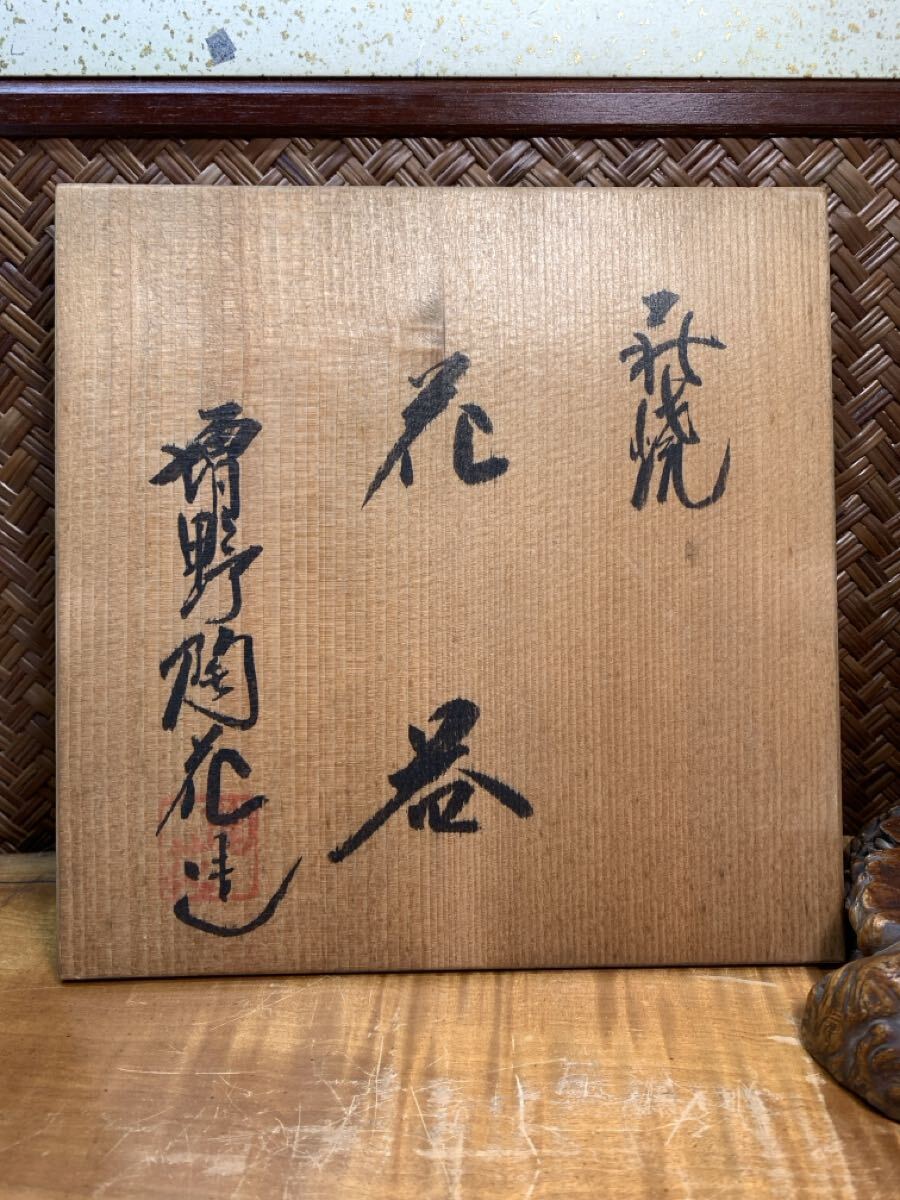 萩焼
花器
増野陶花造